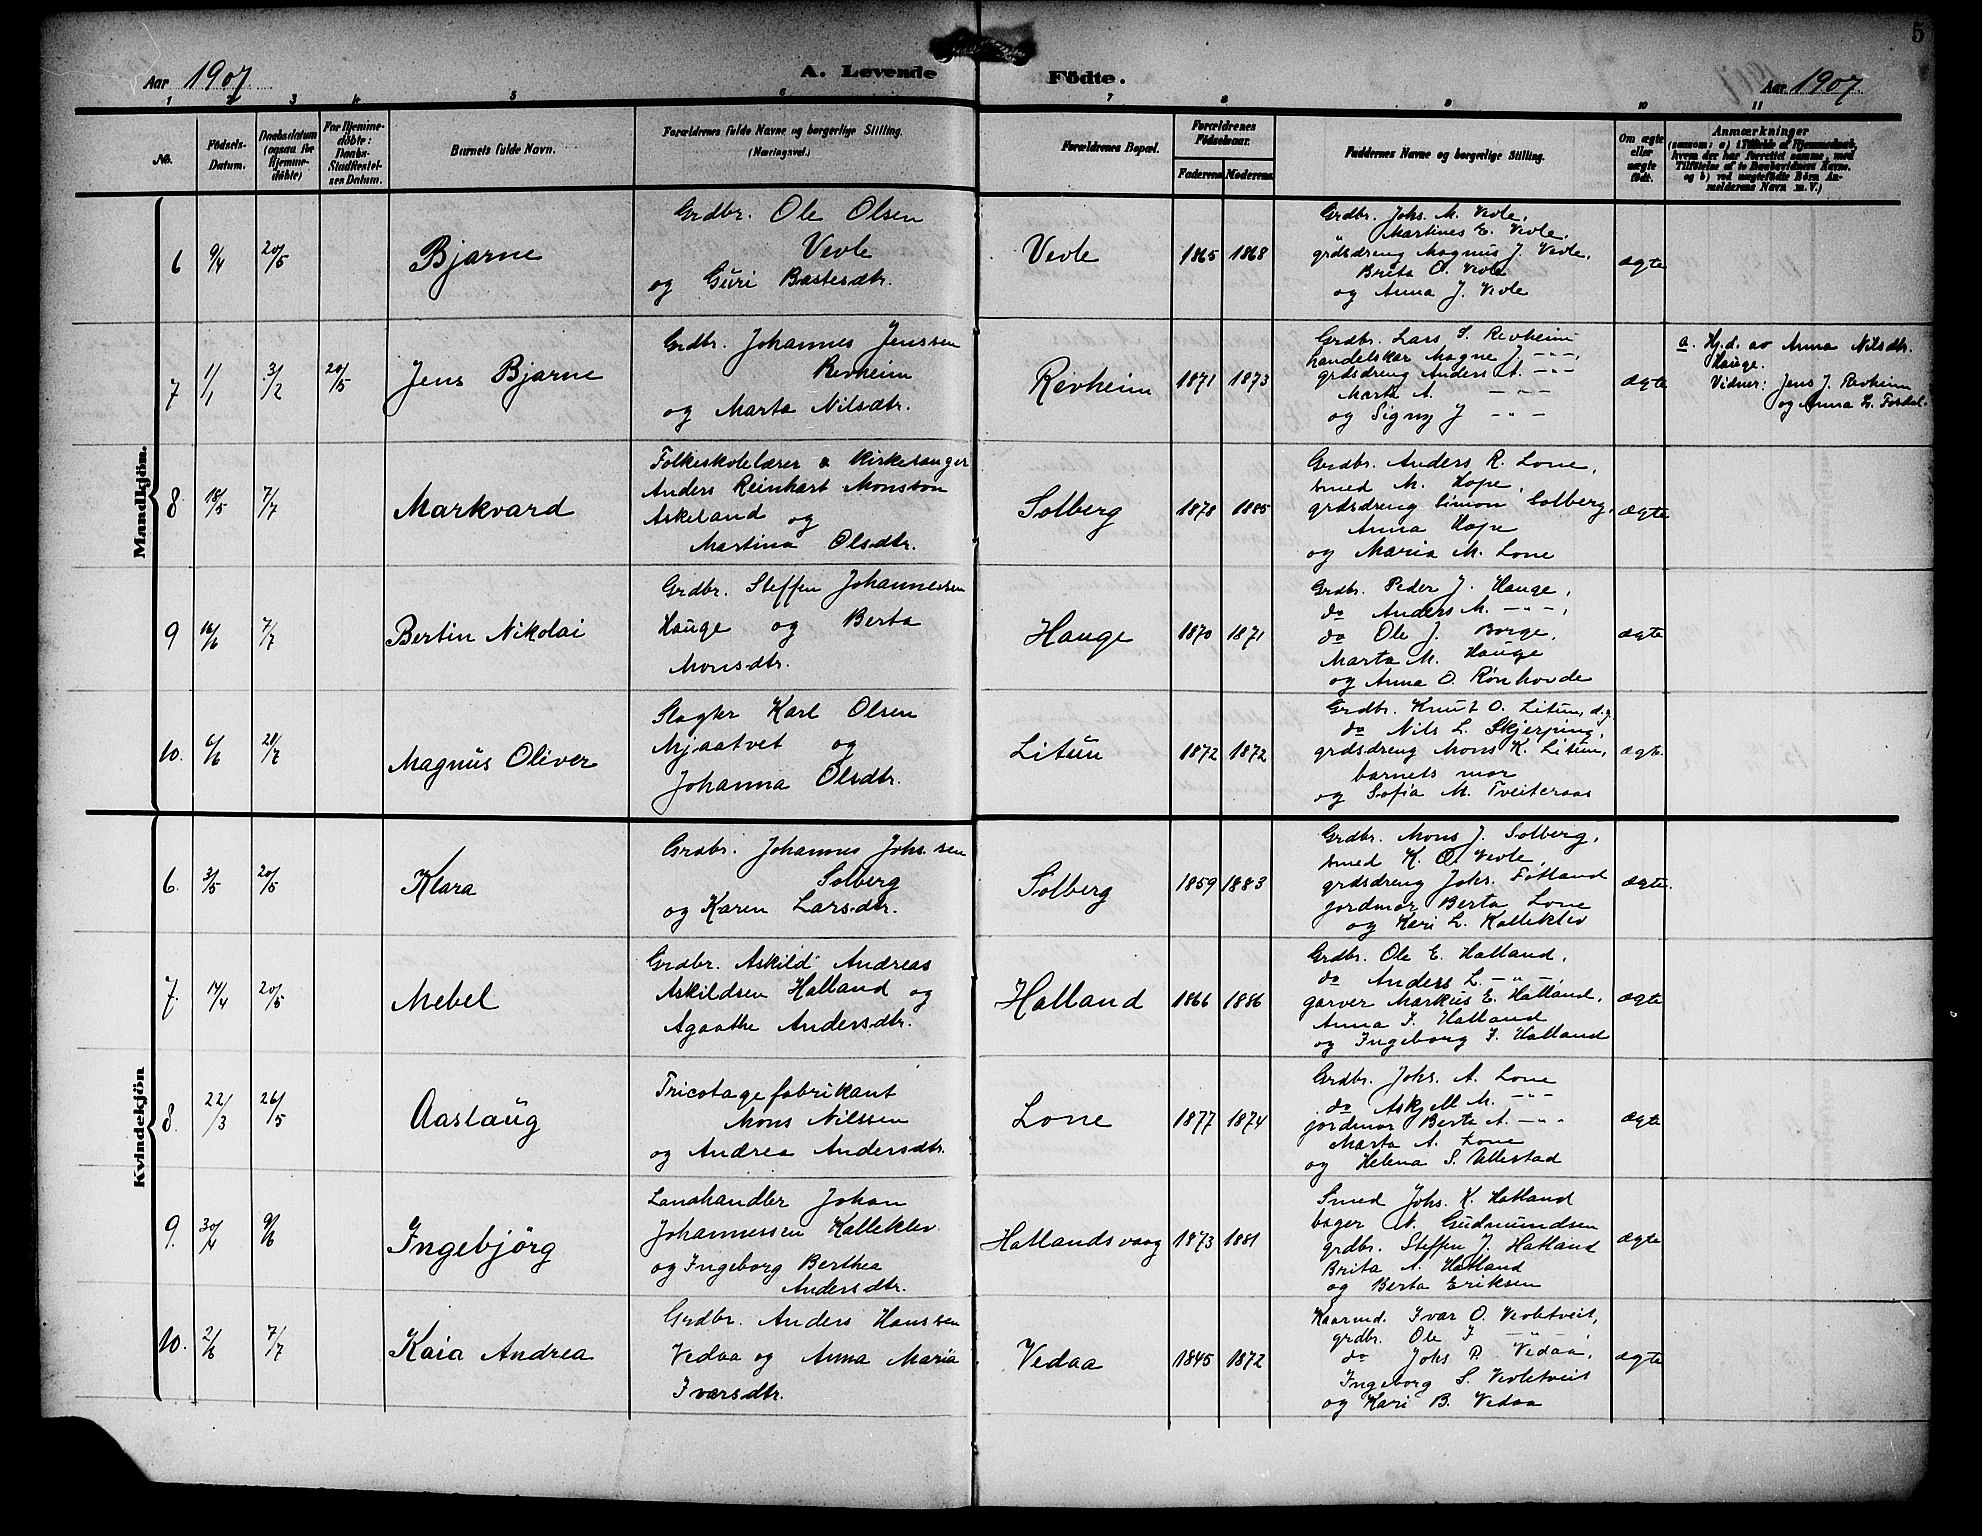 5
Aar 1907
A. Levende Födte.
Aar 1907
1 2 3 4 5 6 7 8 9 10 11
No.
Födsels-
Datum.
Daabsdatum
(ogsaa for
Hjemme-
döbte)
For Hjemme-
döbte:
Daabs-
Stadfæstel-
ses Datum.
Barnets fulde Navn.
Forældrenes fulde Navne og borgerlige Stilling.
(Næringsvei.)
Forældrenes Bopæl.
Forældrenes
Födselsaar.
Faderens
Moderens
Faddernes Navne og borgerlige Stilling.
Om ægte
eller
uægte
födt.
Anmærkninger
(saasom: a) i Tilfælde af Hjemmedaab,
hvem der har forrettet samme, med
Tilföielse af to Daabsvidners Navne,
og b) ved uægtefödte Börn An-
melderens Navn m. V.)
Mandkjön.
6 9/4 20/5
Bjarne
Grdbr. Ole Olsen
Vevle
og Guri Bastesdtr.
Vevle
1865 1868
Grdbr. Johs. M. Vevle,
Martines E. Vevle,
grdsdreng Magnus J. Vevle,
Brita O. Vevle
og Anna J. Vevle
ægte
7 1/1 3/2 20/5
Jens Bjarne
Grdbr. Johannes Jenssen
Revheim
og Marta Nilsdtr.
Revheim
1871 1873
Grdbr. Lars S. Revheim
handelskar Magne J. -"-,
grdsdreng Anders A. -"-
Marta A. -"-
og Signy J -"-
ægte
a. Hj.d. av Anna Nilsdtr.
Hauge.
Vidner: Jens J. Revheim
og Anna L. Fosdal.
8 18/5 7/7
Markvard
Folkeskolelærer & Kirkesanger
Anders Reinhart Monsson
Askeland og
Martina Olsdtr.
Solberg
1878 1885
Grdbr. Anders R. Lone,
smed M. Hope,
grdsdreng Simon Solberg,
Anna Hope
og Maria M. Lone
ægte
9 16/6 7/7
Bertin Nikolai
Grdbr. Steffen Johannessen
Hauge og Berta
Monsdtr.
Hauge
1870 1871
Grdbr. Peder J. Hauge,
do Anders M. -"-,
do Ole J. Borge,
Marta M. Hauge
og Anna O. Rønhovde
ægte
10. 6/6 21/7
Magnus Oliver
Slagter Karl Olsen
Mjaatvet og
Johanna Olsdtr.
Litun
1872 1872
Grdbr. Knut O. Litun, d.y.
do Nils L. Skjerping,
grdsdreng Mons K. Litun,
barnets mor
og Sofia M. Tveiteraas
ægte.
Kvindekjön
6. 3/5 20/5
Klara
Grdbr. Johannes Johs.sen
Solberg
og Karen Larsdtr.
Solberg
1859 1883
Grdbr. Mons J. Solberg,
smed K. O. Vevle,
grdsdreng Johs. Fotland
jordmor Berta Lone
og Kari L. Kalleklev
ægte.
7. 14/4 20/5
Mebel
Grdbr. Askild Andreas
Askildsen Hatland og
Agaathe Andersdtr.
Hatland
1866 1886
Grdbr. Ole E. Hatland,
do Anders L. -"-,
garver Markus E. Hatland,
Anna I. Hatland
og Ingeborg I. Hatland
ægte
8. 22/3 26/5
Aaslaug
Tricotagefabrikant
Mons Nilssen
og Andrea Andersdtr.
Lone
1877 1874
Grdbr. Johs. A. Lone
do Askjell M. -"-
jordmor Berta A. -"-
Marta A. Lone
og Helena S. Ullestad
ægte
9. 30/4 9/6
Ingebjörg
Landhandler Johan
Johannessen Kalleklev
og Ingeborg Berthea
Andersdtr.
Hatlandsvaag
1873 1881
Smed Johs. K. Hatland
bager A. Gudmundsen
grdbr. Steffen J. Hatland
Brita A. Hatland
og Berta Eriksen
ægte
10. 2/6 7/7
Kaia Andrea
Grdbr. Anders Hanssen
Vedaa og Anna Maria
Ivarsdtr.
Vedaa
1845 1872
Kaarmd. Ivar O. Vevletveit,
grdbr. Ole I -"-
do Johs P. Vedaa,
Ingeborg S. Vevletveit
og Kari B. Vedaa
ægte